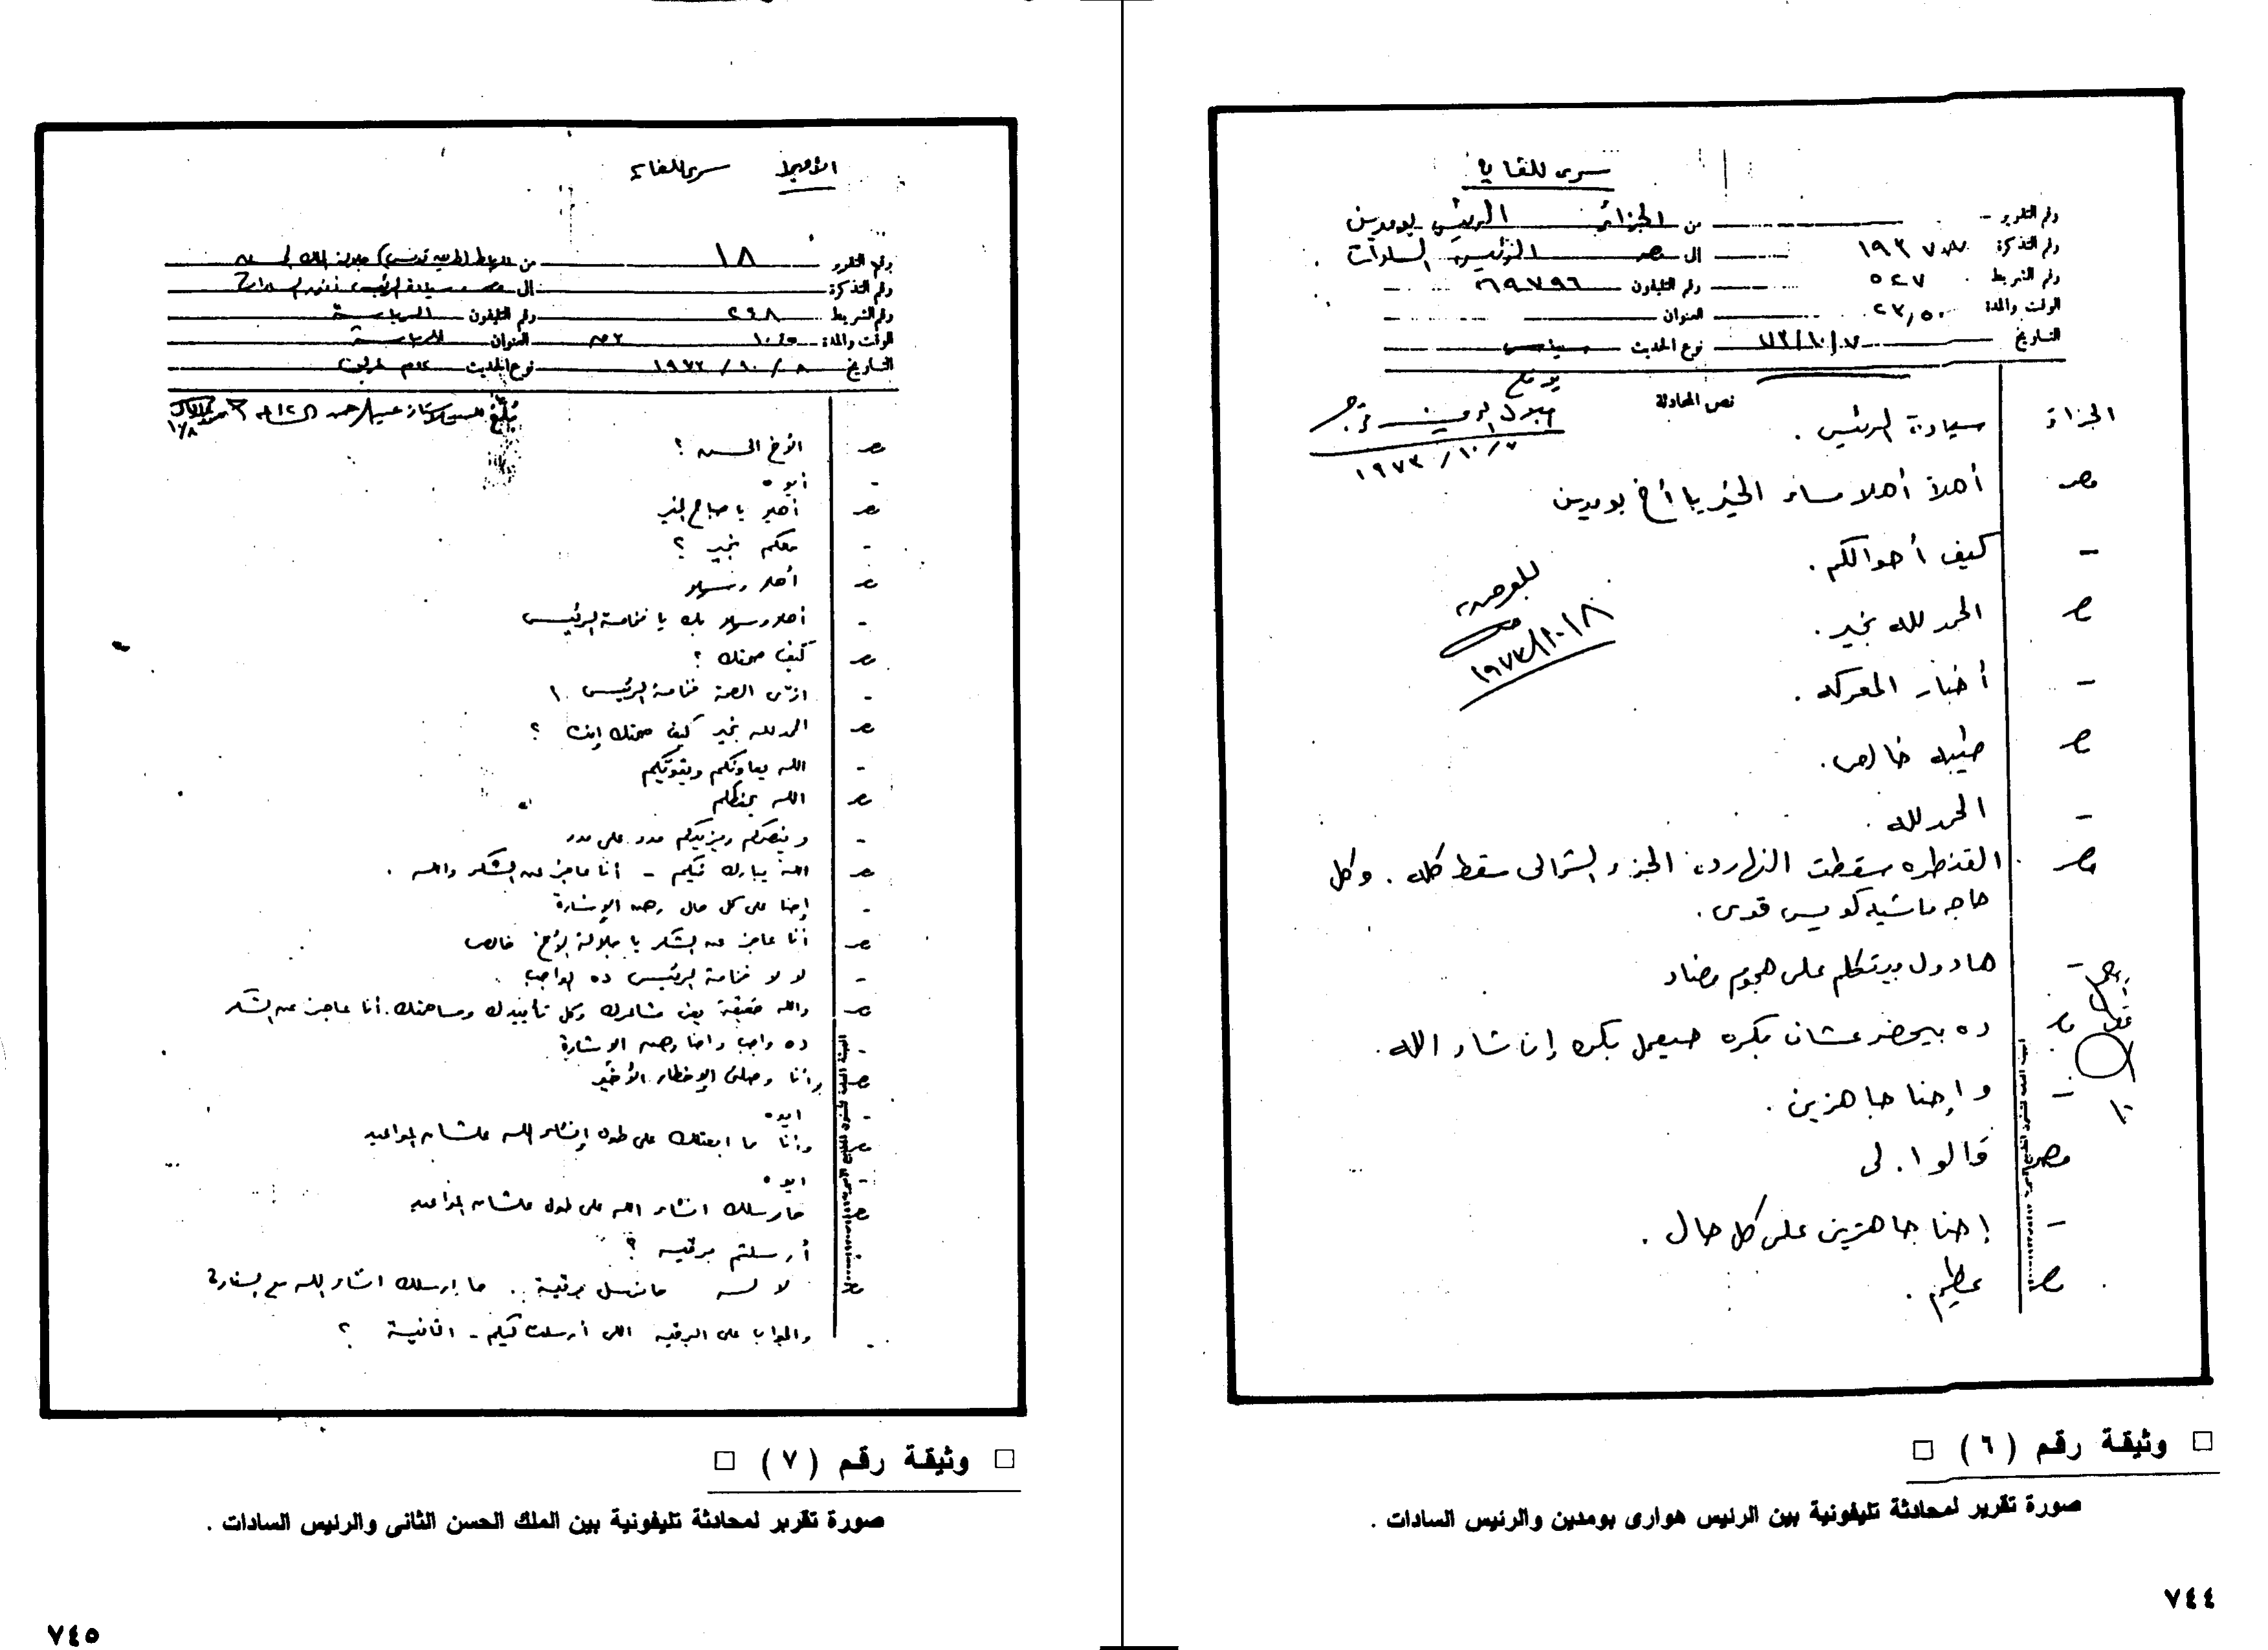 سرى للغاية
رقم التقرير — من الجزائر الرئيس بومدين
رقم التذكرة ١٩٣٧ إلى مصر الرئيس السادات
رقم الشريط ٥٤٧ رقم التليفون ٦٩٧٩٦
الوقت والمدة ٢٣,٥٠ العنوان
التاريخ ٧٣/١٠/٧ نوع الحديث سياسى
نص المحادثة
١٩٧٣/١٠/٧
الجزائر سيادة الرئيس .
مصر أهلاً أهلا مساء الخير يا أخ بومدين
— كيف أحوالكم .
مصر الحمد لله بخير .
— أخبار المعركه .
مصر طيبه خالص .
— الحمد لله .
مصر القنطره سقطت النهارده الجزء الشمالى سقط كله . وكل
حاجه ماشيه كويس قوى .
— هادول بيتكلم على هجوم مضاد
مصر ده بيحضر عشان بكره حيعمل بكره إن شاء الله .
— وإحنا جاهزين .
مصر قالوا لى
— إحنا جاهزين على كل حال .
مصر عظيم .
للعرض
١٩٧٣/١٠/٨
□ وثيقة رقم (٦) □
صورة تقرير لمحادثة تليفونية بين الرئيس هوارى بومدين والرئيس السادات .
٧٤٤
سرى للغاية
رقم التقرير ١٨ من الرباط جلالة الملك الحسن
رقم التذكرة إلى مصر سيادة الرئيس أنور السادات
رقم الشريط ٢٤٨ رقم التليفون الرياسة
الوقت والمدة العنوان الرياسة
التاريخ ١٩٧٣/١٠/٨ نوع الحديث
مصر الأخ الحسن ؟
- أيوه
مصر أهلا يا صباح الخير
- معكم بخير ؟
مصر أهلا وسهلا
- أهلا وسهلا بك يا فخامة الرئيس
مصر كيف صحتك ؟
- ازى الصحة فخامة الرئيس
مصر الحمد لله بخير كيف صحتك إنت ؟
- الله يعاونكم ويقويكم
مصر الله يحفظكم
- وينصركم ويزيدكم مدد على مدد
مصر الله يبارك فيكم - أنا عاجز عن الشكر والله .
- إحنا على كل حال رهن الإشارة
مصر أنا عاجز عن الشكر يا جلالة الأخ خالص
- لا لا فخامة الرئيس ده الواجب .
مصر والله حقيقة يعنى مشاعرك وكل تأييدك ومساهمتك . أنا عاجز عن الشكر
- ده واجب واحنا رهن الإشارة
مصر وأنا وصلنى الإخطار الأخير
- ايوه
مصر وأنا ها ابعتلك على طول إنشاء الله علشان المواعيد
- ايوه
مصر حارسلك انشاء الله على طول علشان المواعيد
- أرسلتم برقيه ؟
مصر لا لسه حانرسل برقية . حا ارسلك انشاء الله مع السفارة
- والجواب على البرقيه اللى أرسلت ليكم - الثانية ؟
□ وثيقة رقم (٧) □
صورة تقرير لمحادثة تليفونية بين الملك الحسن الثانى والرئيس السادات .
٧٤٥